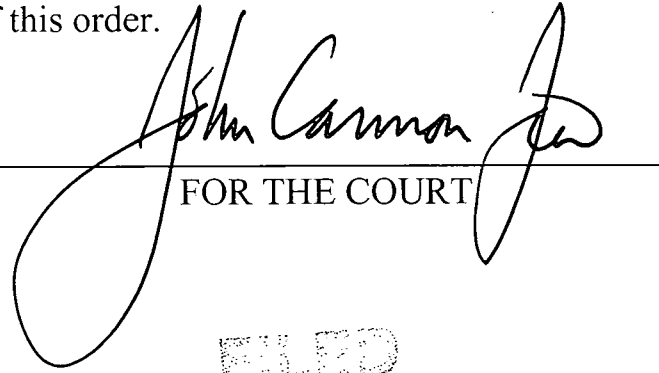 f this order.
John Cannon Few
FOR THE COURT
FILED